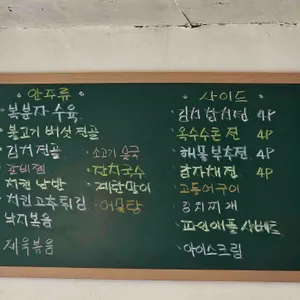 안주류
복분자 수육
불고기 버섯 전골
김치 전골
갈비찜
치킨 난반
치킨 고추튀김
낙지볶음
제육볶음
소고기 술국
잔치국수
계란말이
어묵탕
사이드
4P
옥수수콘 전 4P
해물 부추전 4P
감자채전 4P
고등어구이
김치찌개
파인애플 샤베트
아이스크림